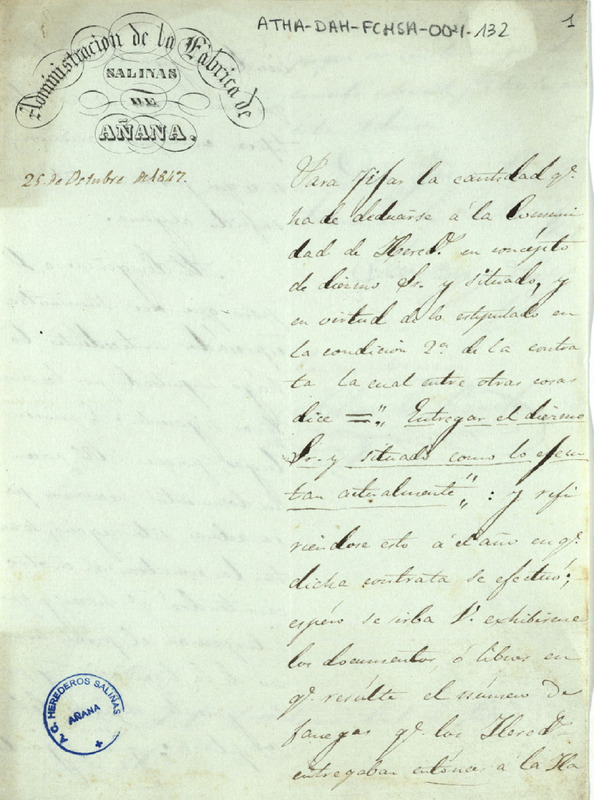 ATHA-DAH-FCHSA-004-132
1
Administracion de la Fábrica de
SALINAS
DE
AÑANA.
25 de Octubre de 1847.
Para fijar la cantidad q.e
ha de deducirse á la Comuni
dad de Hered.s en concépto
de diezmo Sr. y situado, y
en virtud de lo estipulado en
la condicion 2.a de la contra
ta la cual entre otras cosas
dice =" Entregar el diezmo
Sr. y situado como lo efecu
tan actualmente" : y refi
riendose esto á el año en q.e
dicha contrata se efectuó;
espero se sirba V. exhibirme
los documentos ó libros en
q.e resulte el número de
fanegas q.e los Hered.s
entregaban entónces á la Ha
A. C. HEREDEROS SALINAS
AÑANA